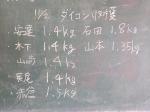 11/2 ダイコン収穫
安達 1.4kg 石田 1.8kg
木下 1.4kg 山本 1.35kg
山崎 1.4kg
栗尾 1.4kg
赤岔 1.5kg